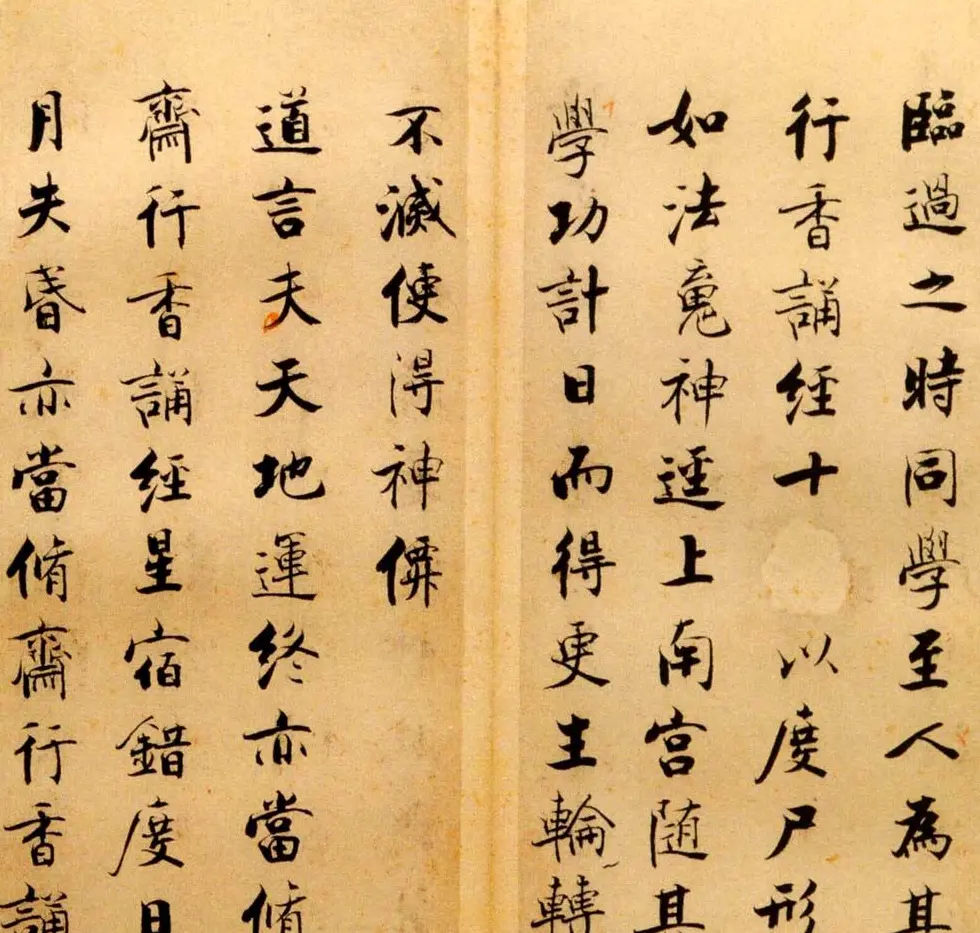 臨過之時同學至人為其
行香誦經十以度尸形
如法魂神逕上南宮随其
學功計日而得更生輪轉
不滅使得神僊
道言夫天地運終亦當脩
齋行香誦經星宿錯度日
月失昏亦當脩齋行香誦